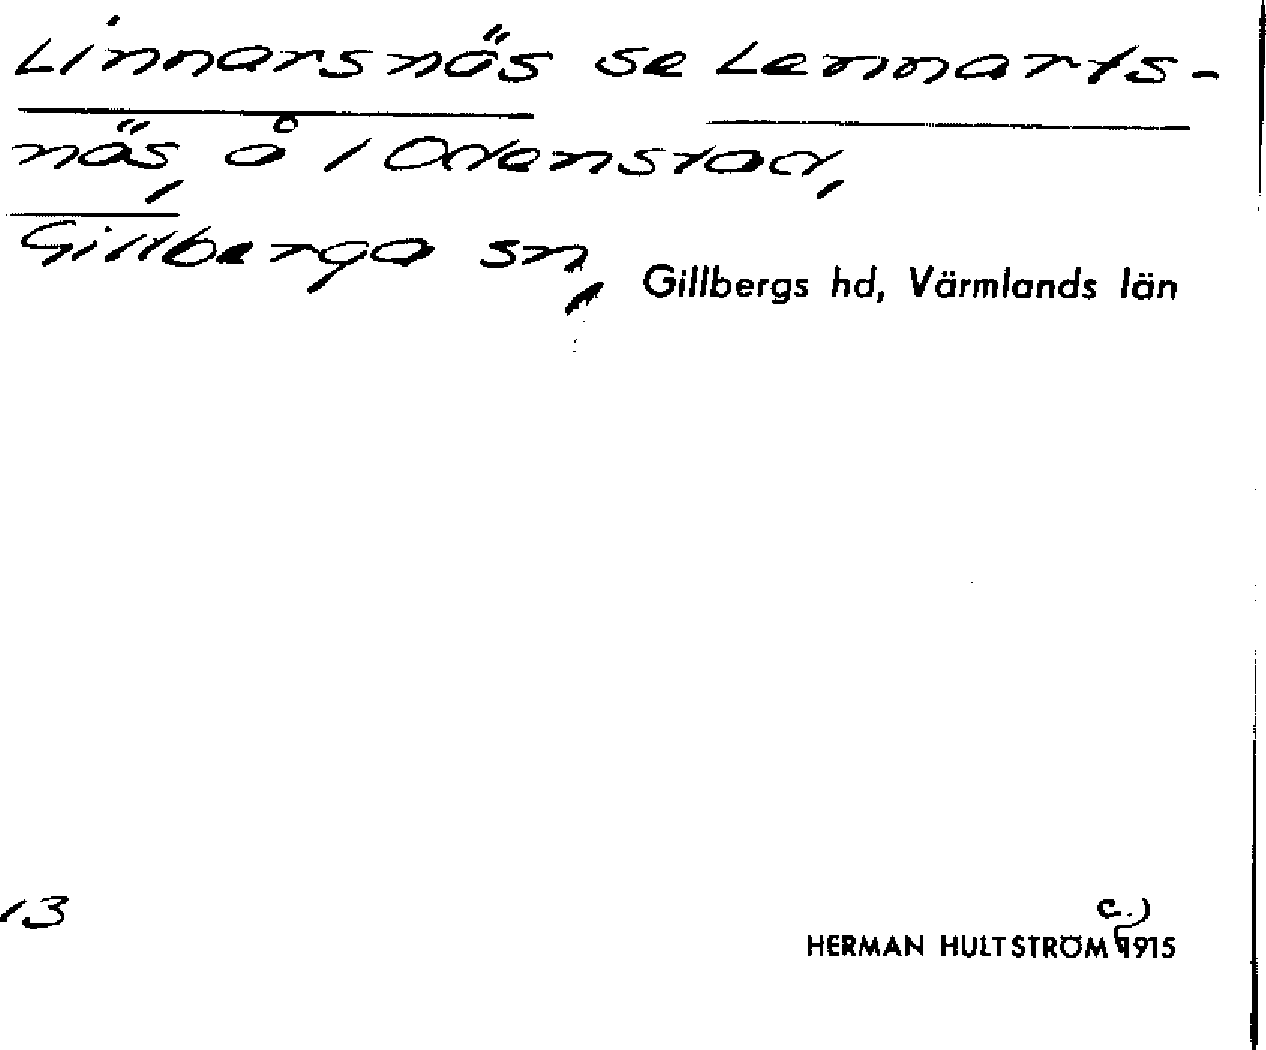 Linnarsnäs se Lennarts-
näs, å i Odenstad,
Gillberga sn, Gillbergs hd, Värmlands län
13
c.)
HERMAN HULTSTRÖM 1915